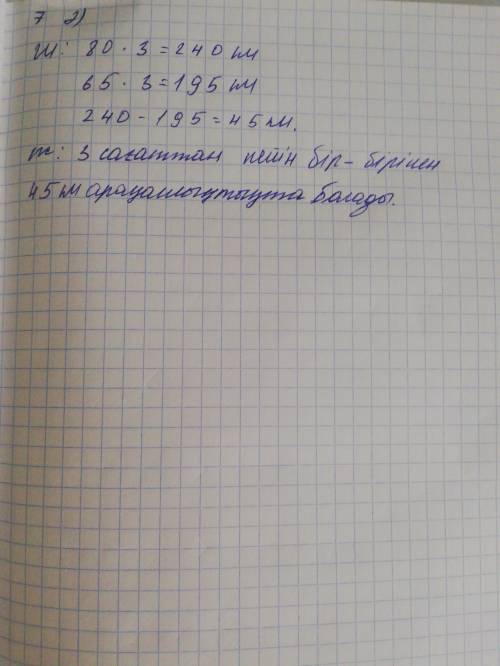 7 2)
Ш: 80 · 3 = 240 км
65 · 3 = 195 км
240 - 195 = 45 км.
ж: 3 сағаттан кейін бір-бірінен
45 км арақашықтықта болады.